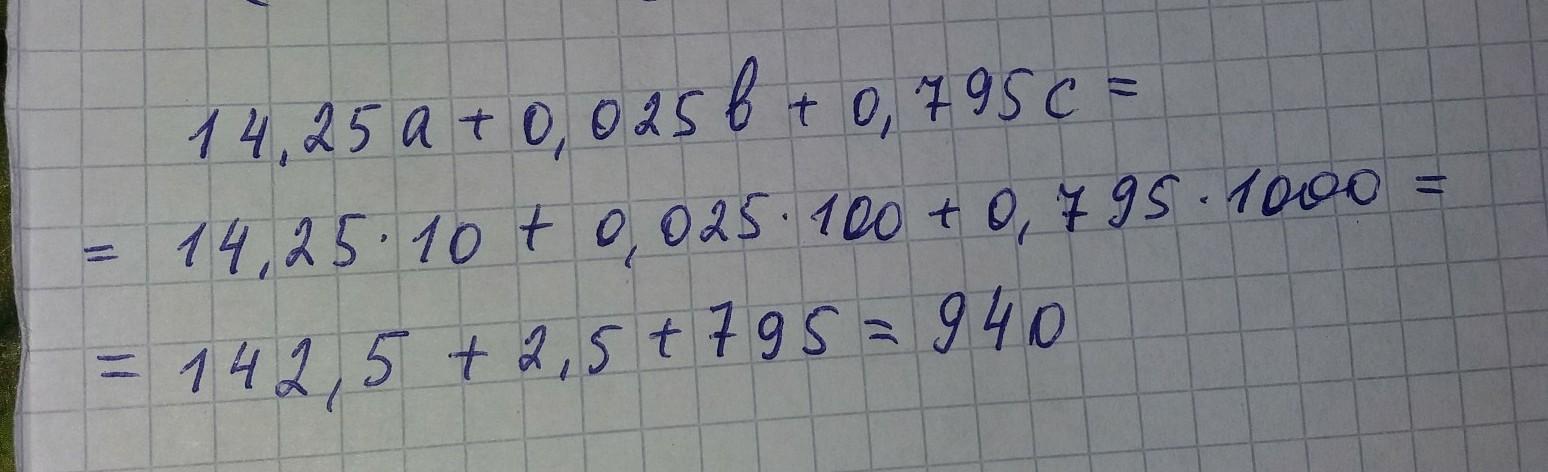 14,25a + 0,025b + 0,795c =
= 14,25·10 + 0,025·100 + 0,795·1000 =
= 142,5 + 2,5 + 795 = 940